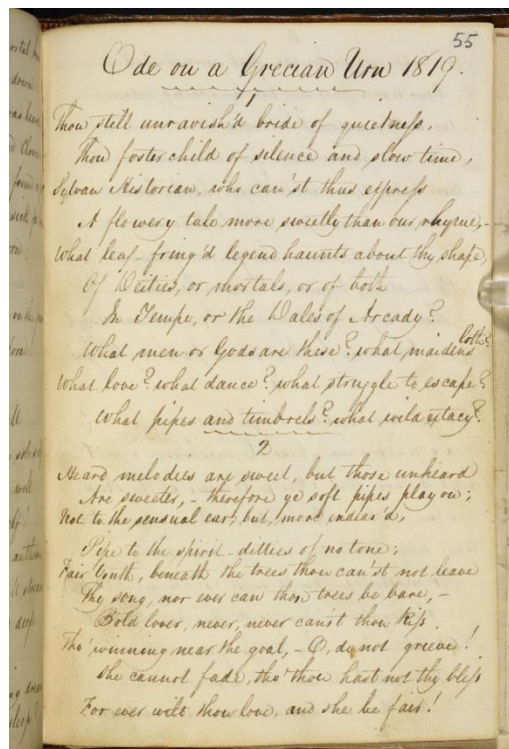 55
Ode on a Grecian Urn 1819.
1
Thou still unravish'd bride of quietness,
Thou foster child of silence and slow time,
Sylvan Historian, who can'st thus express
A flowery tale more sweetly than our rhyme,-
What leaf-fring'd legend haunts about thy shape,
Of Deities, or mortals, or of both
In Tempe, or the Dales of Arcady?
What men or Gods are these? what maidens loth?
What love? what dance? what struggle to escape?
What pipes and timbrels? what wild extacy?
2
Heard melodies are sweet, but those unheard
Are sweeter,- therefore ye soft pipes play on;
Not to the sensual ear, but, more endear'd,
Pipe to the spirit-ditties of no tone;
Fair Youth, beneath the trees thou can'st not leave
Thy song, nor ever can those trees be bare,-
Bold lover, never, never can'st thou kiss.
Tho' winning near the goal,- O, do not grieve!
She cannot fade, tho' thou hast not thy bliss
For ever wilt thou love, and she be fair!